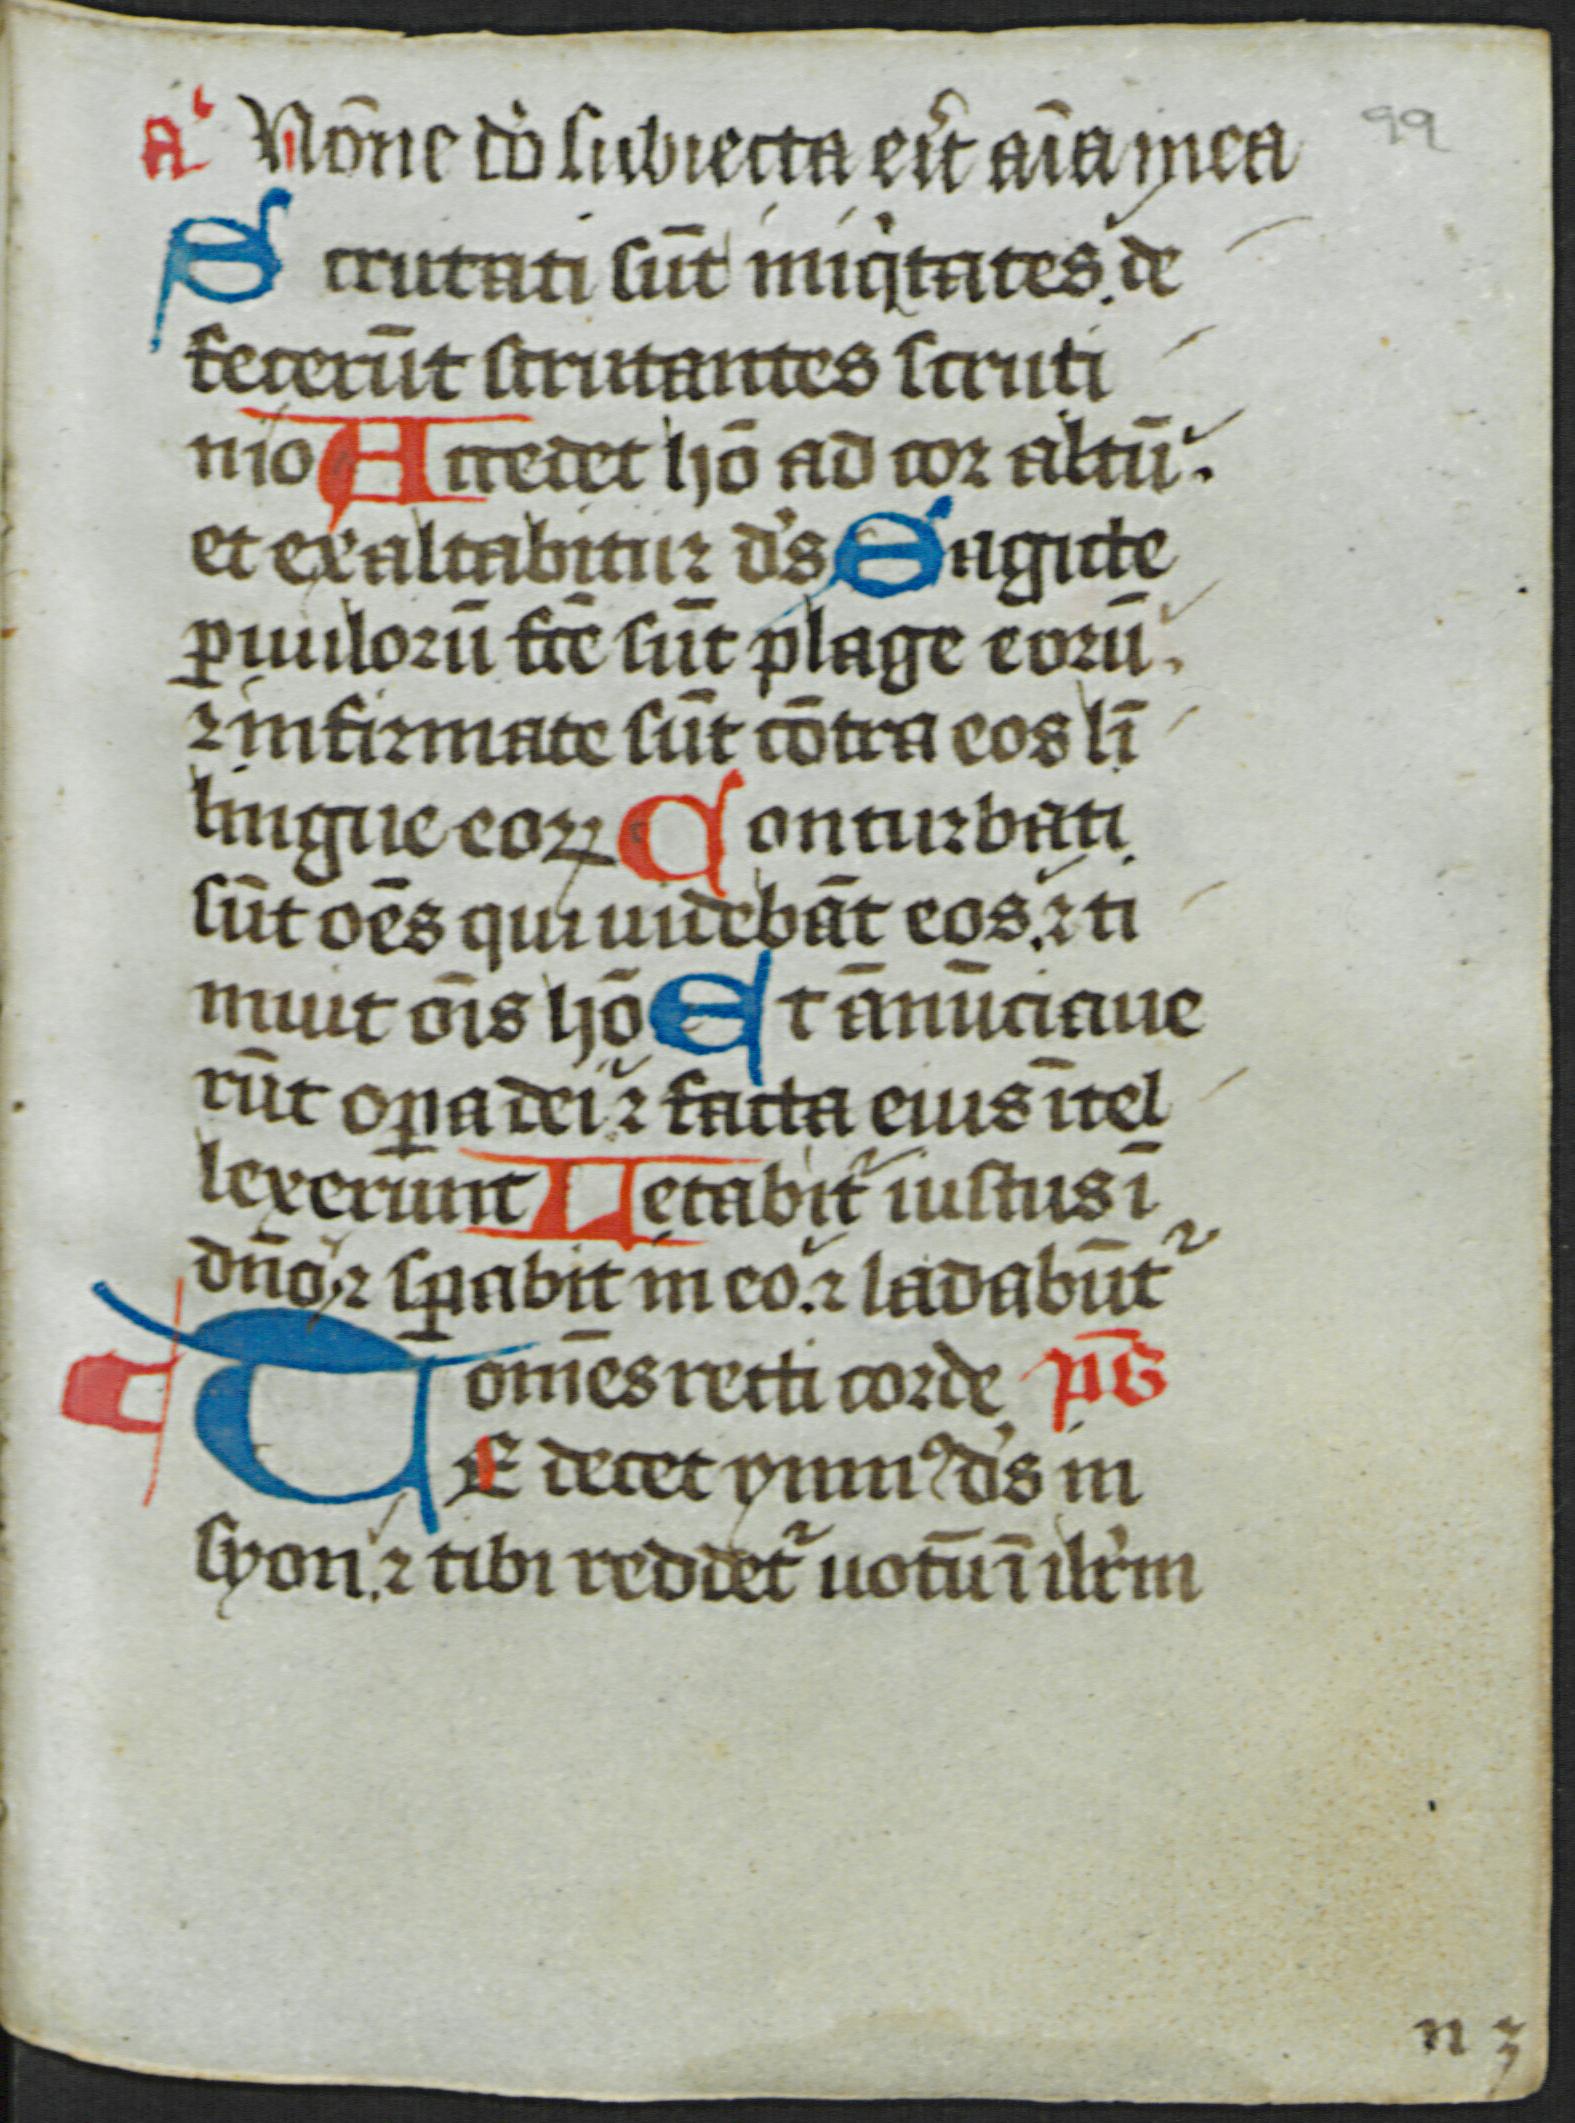 aͥ Nōne dō subiecta erit aīa mea 99
Scrutati sūt iniqͥtates. de
fecerūt scrutantes scruti
nio Accedet hō ad cor altū.
et exaltabitur d's Sagitte
ꝑuulorū fc̄e sūt plage eorū.
⁊ infirmate sūt cōtra eos lī
lingue eoꝝ Conturbati
sūt oēs qui uidebāt eos. ⁊ ti
muit oīs hō Et ānūciaue
rūt oꝑa dei ⁊ facta eius ītel
lexerunt Letabit᷑ iustus ī
dn̄o ⁊ sꝑabit in eo. ⁊ ladabūt᷑
omēs recti corde p̄s
TE decet ymnꝰ d's in
syon. ⁊ tibi reddet᷑ uotū ī ilr'm
n 3